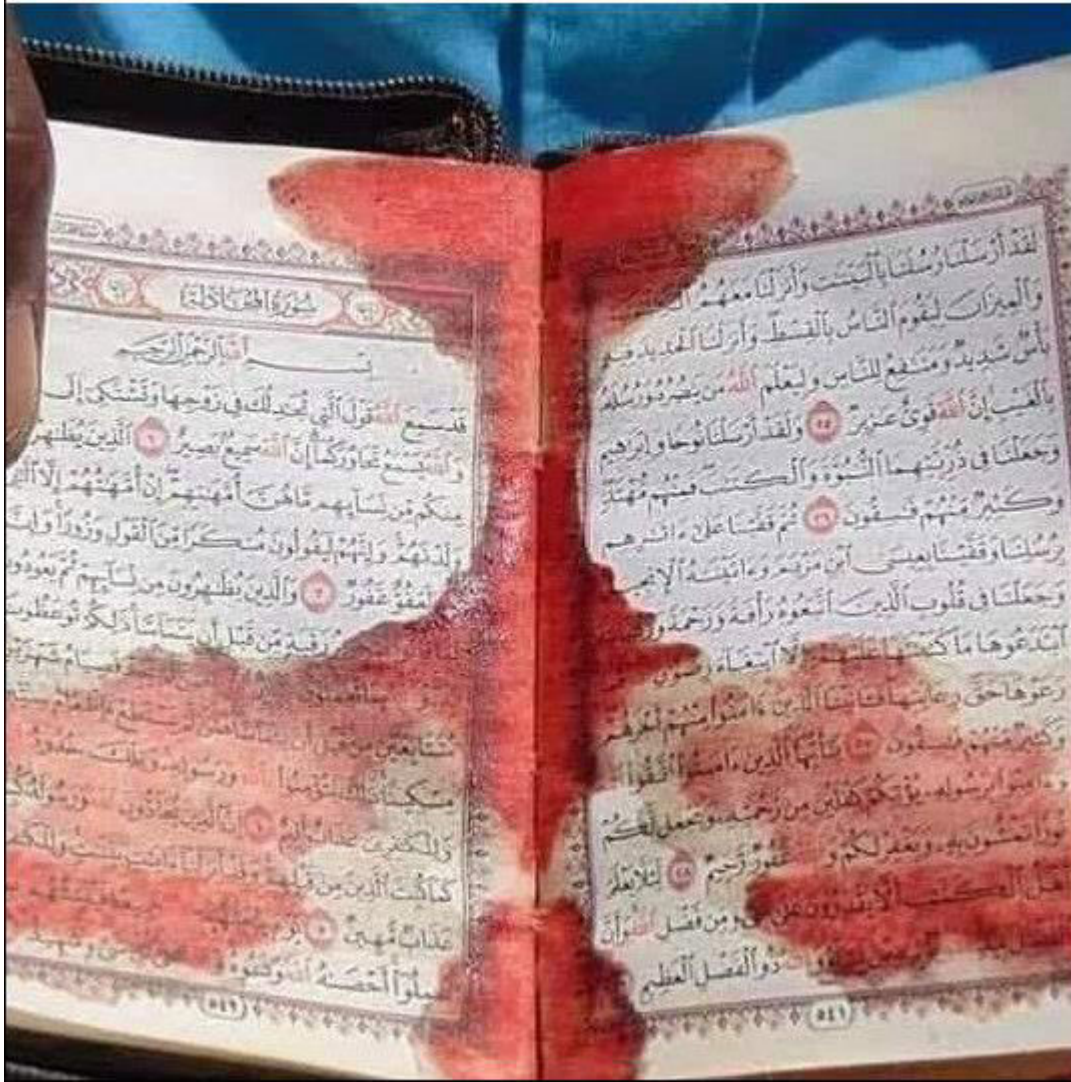 لَقَدْ أَرْسَلْنَا رُسُلَنَا بِالْبَيِّنَٰتِ وَأَنزَلْنَا مَعَهُمُ
وَالْمِيزَانَ لِيَقُومَ النَّاسُ بِالْقِسْطِ وَأَنزَلْنَا الْحَدِيدَ فِيهِ
بَأْسٌ شَدِيدٌ وَمَنَٰفِعُ لِلنَّاسِ وَلِيَعْلَمَ اللَّهُ مَن يَنصُرُهُ وَرُسُلَهُ
بِالْغَيْبِ إِنَّ اللَّهَ قَوِيٌّ عَزِيزٌ ٢٥ وَلَقَدْ أَرْسَلْنَا نُوحًا وَإِبْرَٰهِيمَ
وَجَعَلْنَا فِي ذُرِّيَّتِهِمَا النُّبُوَّةَ وَالْكِتَٰبَ فَمِنْهُم مُّهْتَدٍ
وَكَثِيرٌ مِّنْهُمْ فَٰسِقُونَ ٢٦ ثُمَّ قَفَّيْنَا عَلَىٰ ءَاثَٰرِهِم
بِرُسُلِنَا وَقَفَّيْنَا بِعِيسَى ابْنِ مَرْيَمَ وَءَاتَيْنَٰهُ الْإِنجِيلَ
وَجَعَلْنَا فِي قُلُوبِ الَّذِينَ اتَّبَعُوهُ رَأْفَةً وَرَحْمَةً
ابْتَدَعُوهَا مَا كَتَبْنَٰهَا عَلَيْهِمْ إِلَّا ابْتِغَاءَ رِضْوَٰنِ
رَعَوْهَا حَقَّ رِعَايَتِهَا فَـَٔاتَيْنَا الَّذِينَ ءَامَنُوا مِنْهُمْ أَجْرَهُمْ
وَكَثِيرٌ مِّنْهُمْ فَٰسِقُونَ ٢٧ يَٰأَيُّهَا الَّذِينَ ءَامَنُوا اتَّقُوا
وَءَامِنُوا بِرَسُولِهِ يُؤْتِكُمْ كِفْلَيْنِ مِن رَّحْمَتِهِ وَيَجْعَل لَّكُمْ
نُورًا تَمْشُونَ بِهِ وَيَغْفِرْ لَكُمْ غَفُورٌ رَّحِيمٌ ٢٨ لِّئَلَّا يَعْلَمَ
أَهْلُ الْكِتَٰبِ أَلَّا يَقْدِرُونَ عَلَىٰ مِّن فَضْلِ اللَّهِ وَأَنَّ
ذُو الْفَضْلِ الْعَظِيمِ
٥٤١
سُورَةُ الْمُجَادَلَة
بِسْمِ اللَّهِ الرَّحْمَٰنِ الرَّحِيمِ
قَدْ سَمِعَ اللَّهُ قَوْلَ الَّتِي تُجَٰدِلُكَ فِي زَوْجِهَا وَتَشْتَكِي إِلَى
وَاللَّهُ يَسْمَعُ تَحَاوُرَكُمَا إِنَّ اللَّهَ سَمِيعٌ بَصِيرٌ ١ الَّذِينَ يُظَٰهِرُونَ
مِنكُم مِّن نِّسَائِهِم مَّا هُنَّ أُمَّهَٰتِهِمْ إِنْ أُمَّهَٰتُهُمْ إِلَّا الَّٰـِٔي
وَلَدْنَهُمْ وَإِنَّهُمْ لَيَقُولُونَ مُنكَرًا مِّنَ الْقَوْلِ وَزُورًا وَإِنَّ
لَعَفُوٌّ غَفُورٌ ٢ وَالَّذِينَ يُظَٰهِرُونَ مِن نِّسَائِهِمْ ثُمَّ يَعُودُونَ
رَقَبَةٍ مِّن قَبْلِ أَن يَتَمَاسَّا ذَٰلِكُمْ تُوعَظُونَ
فَصِيَامُ شَهْرَيْنِ
مُتَتَابِعَيْنِ مِن قَبْلِ أَن يَتَمَاسَّا فَمَن لَّمْ يَسْتَطِعْ فَإِطْعَامُ سِتِّينَ
مِسْكِينًا ذَٰلِكَ لِتُؤْمِنُوا وَرَسُولِهِ وَتِلْكَ حُدُودُ
وَلِلْكَٰفِرِينَ عَذَابٌ أَلِيمٌ ٤ إِنَّ الَّذِينَ يُحَادُّونَ وَرَسُولَهُ
كَمَا كُبِتَ الَّذِينَ مِن قَبْلِهِمْ وَقَدْ أَنزَلْنَا ءَايَٰتٍ بَيِّنَٰتٍ وَلِلْكَٰفِرِينَ
عَذَابٌ مُّهِينٌ ٥
عَمِلُوا أَحْصَىٰهُ اللَّهُ وَنَسُوهُ
٥٤٢